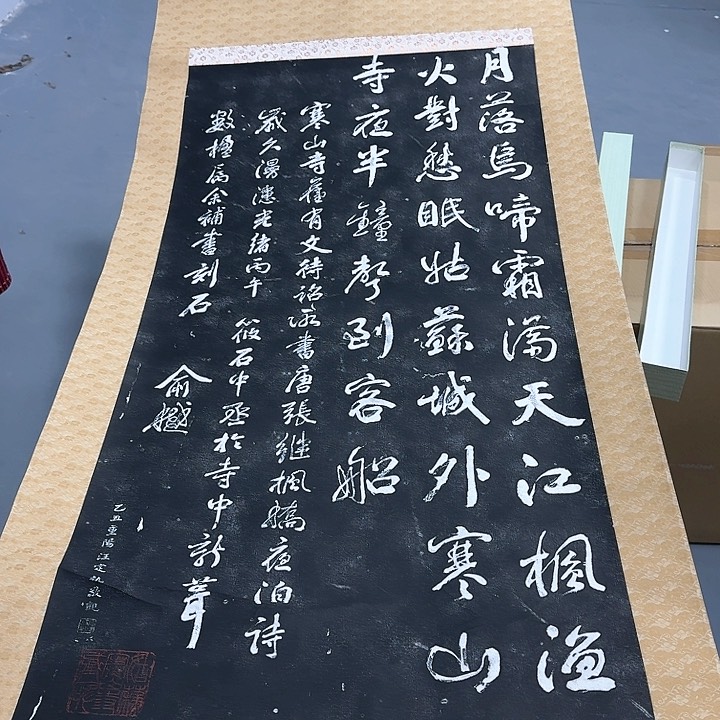 月落烏啼霜滿天江楓漁
火對愁眠姑蘇城外寒山
寺夜半鐘聲到客船
寒山寺舊有文待詔所書唐張繼楓橋夜泊詩
歲久漫漶光緒丙午筱石中丞於寺中新葺
數楹屬余補書刻石
俞樾
乙丑重陽汪定執敬觀